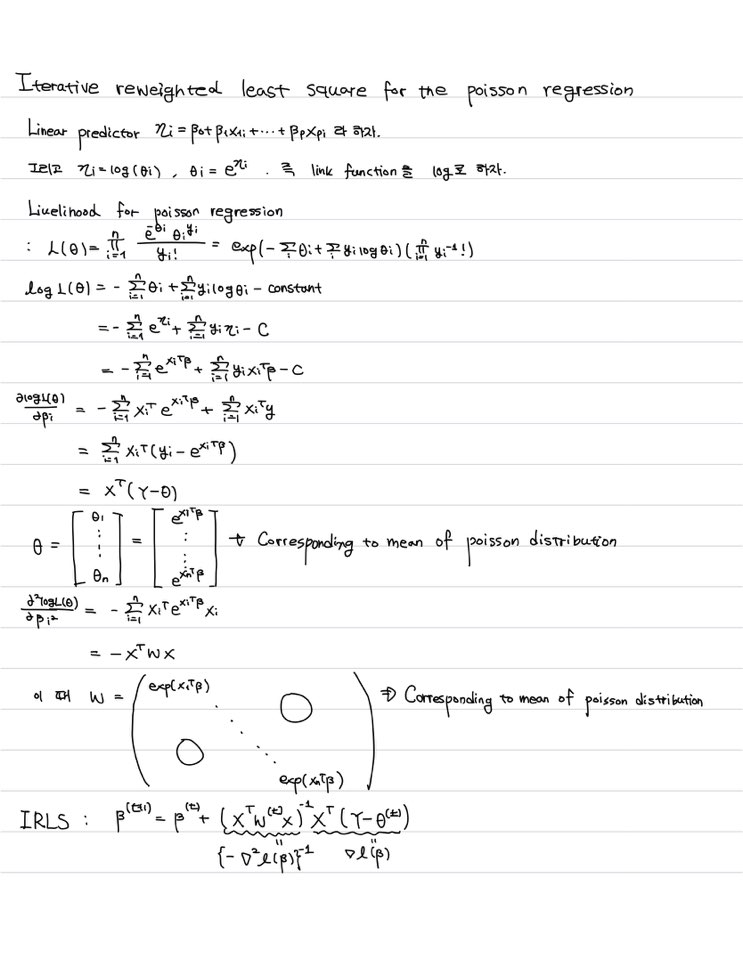 Iterative reweighted least square for the poisson regression
Linear predictor ηi = β0 + β1x1i + ⋯ + βpxpi 라 하자.
그리고 ηi = log(θi) , θi = e^ηi . 즉 link function을 log로 하자.
Livelihood for poisson regression
: L(θ) = ∏_{i=1}^{n} e^{-θi} θi^{yi} / yi! = exp(-∑_i θi + ∑_i yi log θi) (∏_{i=1}^{n} yi^{-1}!)
log L(θ) = - ∑_{i=1}^{n} θi + ∑_{i=1}^{n} yi log θi - constant
= - ∑_{i=1}^{n} e^{ηi} + ∑_{i=1}^{n} yi ηi - C
= - ∑_{i=1}^{n} e^{xi^Tβ} + ∑_{i=1}^{n} yi xi^Tβ - C
∂logL(θ)/∂βi = - ∑_{i=1}^{n} xi^T e^{xi^Tβ} + ∑_{i=1}^{n} xi^T y
= ∑_{i=1}^{n} xi^T (yi - e^{xi^Tβ})
= X^T (Y - θ)
θ = [θ1 ⋮ θn] = [e^{x1^Tβ} ⋮ e^{xn^Tβ}] → Corresponding to mean of poisson distribution
∂²logL(θ)/∂βi² = - ∑_{i=1}^{n} xi^T e^{xi^Tβ} xi
= - X^T W X
이 때 W = (exp(x1^Tβ) ⋱ exp(xn^Tβ)) ⇒ Corresponding to mean of poisson distribution
IRLS : β^{(t+1)} = β^{(t)} + (X^T W^{(t)} X)^{-1} X^T (Y - θ^{(t)})
{-∇²l(β)}^{-1} ∇l(β)